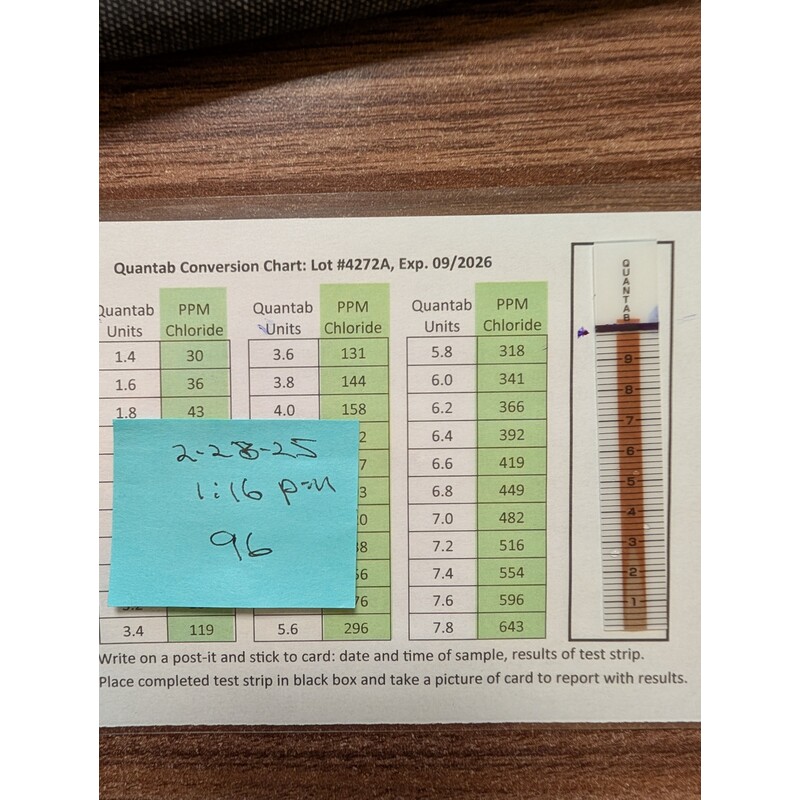 Quantab Conversion Chart: Lot #4272A, Exp. 09/2026
Quantab PPM Quantab PPM Quantab PPM
Units Chloride Units Chloride Units Chloride
1.4 30 3.6 131 5.8 318
1.6 36 3.8 144 6.0 341
1.8 43 4.0 158 6.2 366
2 6.4 392
7 6.6 419
3 6.8 449
0 7.0 482
8 7.2 516
6 7.4 554
76 7.6 596
3.4 119 5.6 296 7.8 643
2-28-25
1:16 pm
96
Write on a post-it and stick to card: date and time of sample, results of test strip.
Place completed test strip in black box and take a picture of card to report with results.
QUANTAB
9
8
7
6
5
4
3
2
1